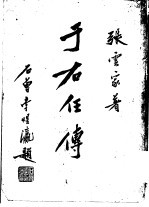 張雲家著
于右任傳
石曾李煜瀛題